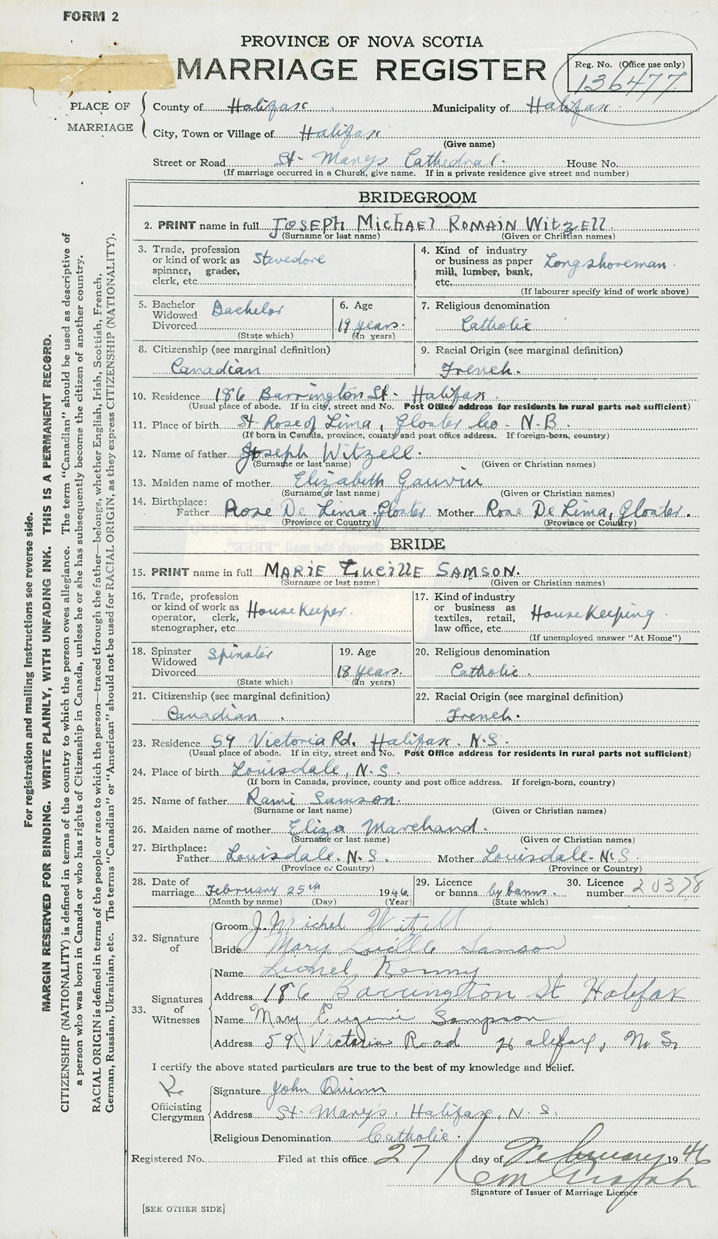 FORM 2
PROVINCE OF NOVA SCOTIA
MARRIAGE REGISTER
Reg. No. (Office use only)
136477
PLACE OF MARRIAGE
County of Halifax Municipality of Halifax
City, Town or Village of Halifax
(Give name)
Street or Road St. Marys Cathedral. House No.
(If marriage occurred in a Church, give name. If in a private residence give street and number)
BRIDEGROOM
2. PRINT name in full JOSEPH MICHAEL ROMAIN WITZELL.
(Surname or last name) (Given or Christian names)
3. Trade, profession or kind of work as spinner, grader, clerk, etc. Stevedore
4. Kind of industry or business as paper mill, lumber, bank, etc. Longshoreman.
(If labourer specify kind of work above)
5. Bachelor Widowed Divorced Bachelor
(State which)
6. Age 19 years.
(In years)
7. Religious denomination
Catholic
8. Citizenship (see marginal definition)
Canadian
9. Racial Origin (see marginal definition)
French.
10. Residence 186 Barrington St. Halifax.
(Usual place of abode. If in city, street and No. Post Office address for residents in rural parts not sufficient)
11. Place of birth St Rose of Lima, Gloster Co. N.B.
(If born in Canada, province, county and post office address. If foreign-born, country)
12. Name of father Joseph Witzell.
(Surname or last name) (Given or Christian names)
13. Maiden name of mother Elizabeth Gauvin
(Surname or last name) (Given or Christian names)
14. Birthplace: Father Rose De Lima Gloster Mother Rose De Lima, Gloster.
(Province or Country) (Province or Country)
BRIDE
15. PRINT name in full MARIE LUCILLE SAMSON.
(Surname or last name) (Given or Christian names)
16. Trade, profession or kind of work as operator, clerk, stenographer, etc. House Keeper.
17. Kind of industry or business as textiles, retail, law office, etc. House Keeping.
(If unemployed answer "At Home")
18. Spinster Widowed Divorced Spinster
(State which)
19. Age 18 years.
(In years)
20. Religious denomination
Catholic.
21. Citizenship (see marginal definition)
Canadian.
22. Racial Origin (see marginal definition)
French.
23. Residence 59 Victoria Rd. Halifax. N.S.
(Usual place of abode. If in city, street and No. Post Office address for residents in rural parts not sufficient)
24. Place of birth Louisdale, N.S.
(If born in Canada, province, county and post office address. If foreign-born, country)
25. Name of father Rami Samson.
(Surname or last name) (Given or Christian names)
26. Maiden name of mother Eliza Marchand.
(Surname or last name) (Given or Christian names)
27. Birthplace: Father Louisdale. N.S. Mother Louisdale. N.S.
(Province or Country) (Province or Country)
28. Date of marriage February 25th 1946
(Month by name) (Day) (Year)
29. Licence or banns by banns.
(State which)
30. Licence number 20378
32. Signature of
Groom J. Michel Witzell
Bride Mary Lucille Samson
33. Signatures of Witnesses
Name Lionel Kenny
Address 186 Barrington St Halifax
Name Mary Eugenie Sampson
Address 59 Victoria Road Halifax, N.S.
I certify the above stated particulars are true to the best of my knowledge and belief.
Officiating Clergyman
Signature John Quinn
Address St. Mary's, Halifax, N.S.
Religious Denomination Catholic.
Registered No. Filed at this office 27 day of February 1946
Signature of Issuer of Marriage Licence
[SEE OTHER SIDE]
For registration and mailing instructions see reverse side.
MARGIN RESERVED FOR BINDING. WRITE PLAINLY, WITH UNFADING INK. THIS IS A PERMANENT RECORD.
CITIZENSHIP (NATIONALITY) is defined in terms of the country to which the person owes allegiance. The term "Canadian" should be used as descriptive of
a person who was born in Canada or who has rights of Citizenship in Canada, unless he or she has subsequently become the citizen of another country.
RACIAL ORIGIN is defined in terms of the people or race to which the person—traced through the father—belongs, whether English, Irish, Scottish, French,
German, Russian, Ukrainian, etc. The terms "Canadian" or "American" should not be used for RACIAL ORIGIN, as they express CITIZENSHIP (NATIONALITY).